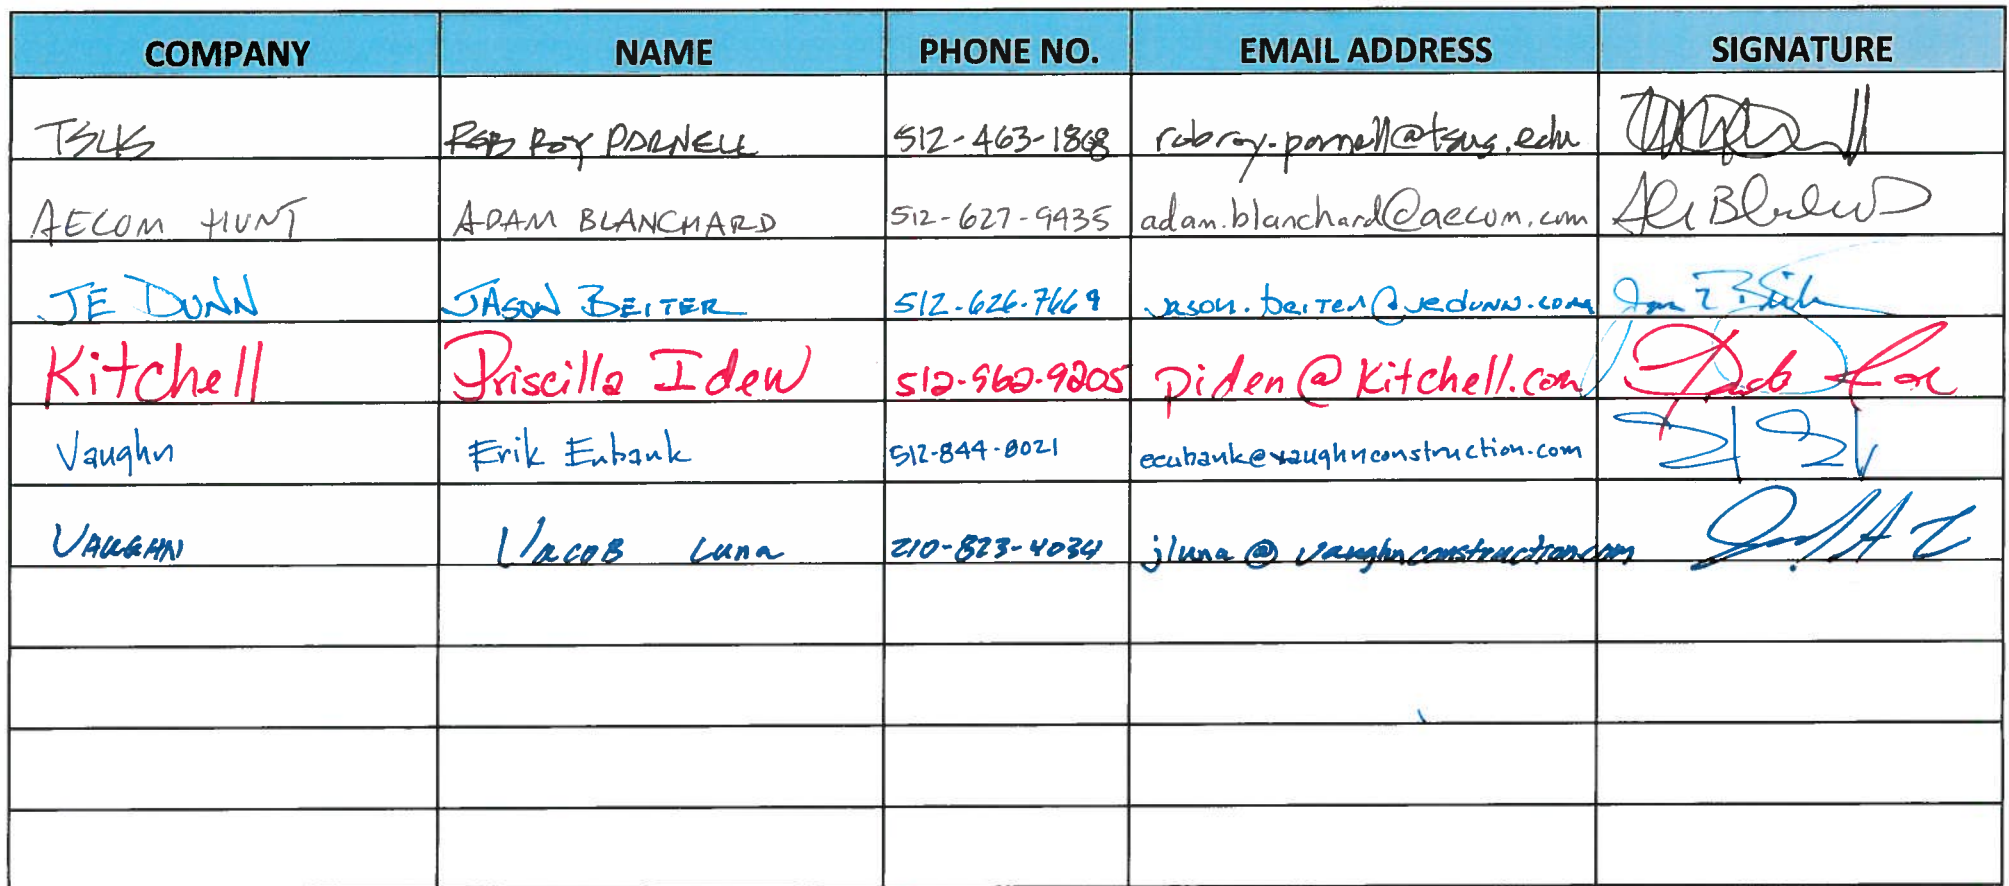 COMPANY NAME PHONE NO. EMAIL ADDRESS SIGNATURE
TSUS ROB ROY PARNELL 512-463-1808 robroy.parnell@tsus.edu
AECOM HUNT ADAM BLANCHARD 512-627-9435 adam.blanchard@aecom.com
JE DUNN JASON BEITER 512-626-7669 jason.beiter@jedunn.com
Kitchell Priscilla Iden 512-962-9205 piden@kitchell.com
Vaughn Erik Eubank 512-844-8021 eeubank@vaughnconstruction.com
VAUGHN JACOB Luna 210-823-4034 jluna@vaughnconstruction.com